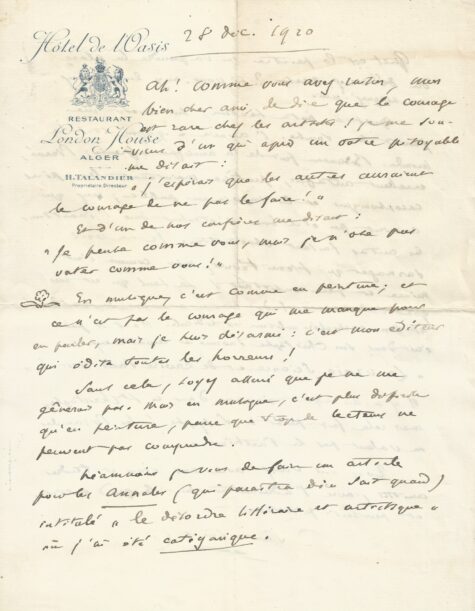 Hôtel de l'Oasis
RESTAURANT
London House
ALGER
H. TALANDIER
Propriétaire Directeur
28 déc. 1920
Ah! Comme vous avez raison, mon
bien cher ami, de dire que le courage
est rare chez les artistes! je me sou-
viens d'un qui après un vote pitoyable
me disait:
"J'espérais que les autres auraient
le courage de ne pas le faire!"
Et d'un de nos confrères me disait:
"Je pense comme vous, mais je n'ose pas
voter comme vous!"
En musique, c'est comme en peinture; et
ce n'est pas le courage qui me manque pour
en parler, mais je suis désarmé: c'est mon éditeur
qui édite toutes les horreurs!
Sans cela, soyez assuré que je ne me
gênerais pas. Mais en musique, c'est plus difficile
qu'en peinture, parce que trop de lecteurs ne
peuvent pas comprendre.
Néanmoins je viens de faire un article
pour les Annales (qui paraîtra Dieu sait quand)
intitulé "le désordre littéraire et artistique"
où j'ai été catégorique.